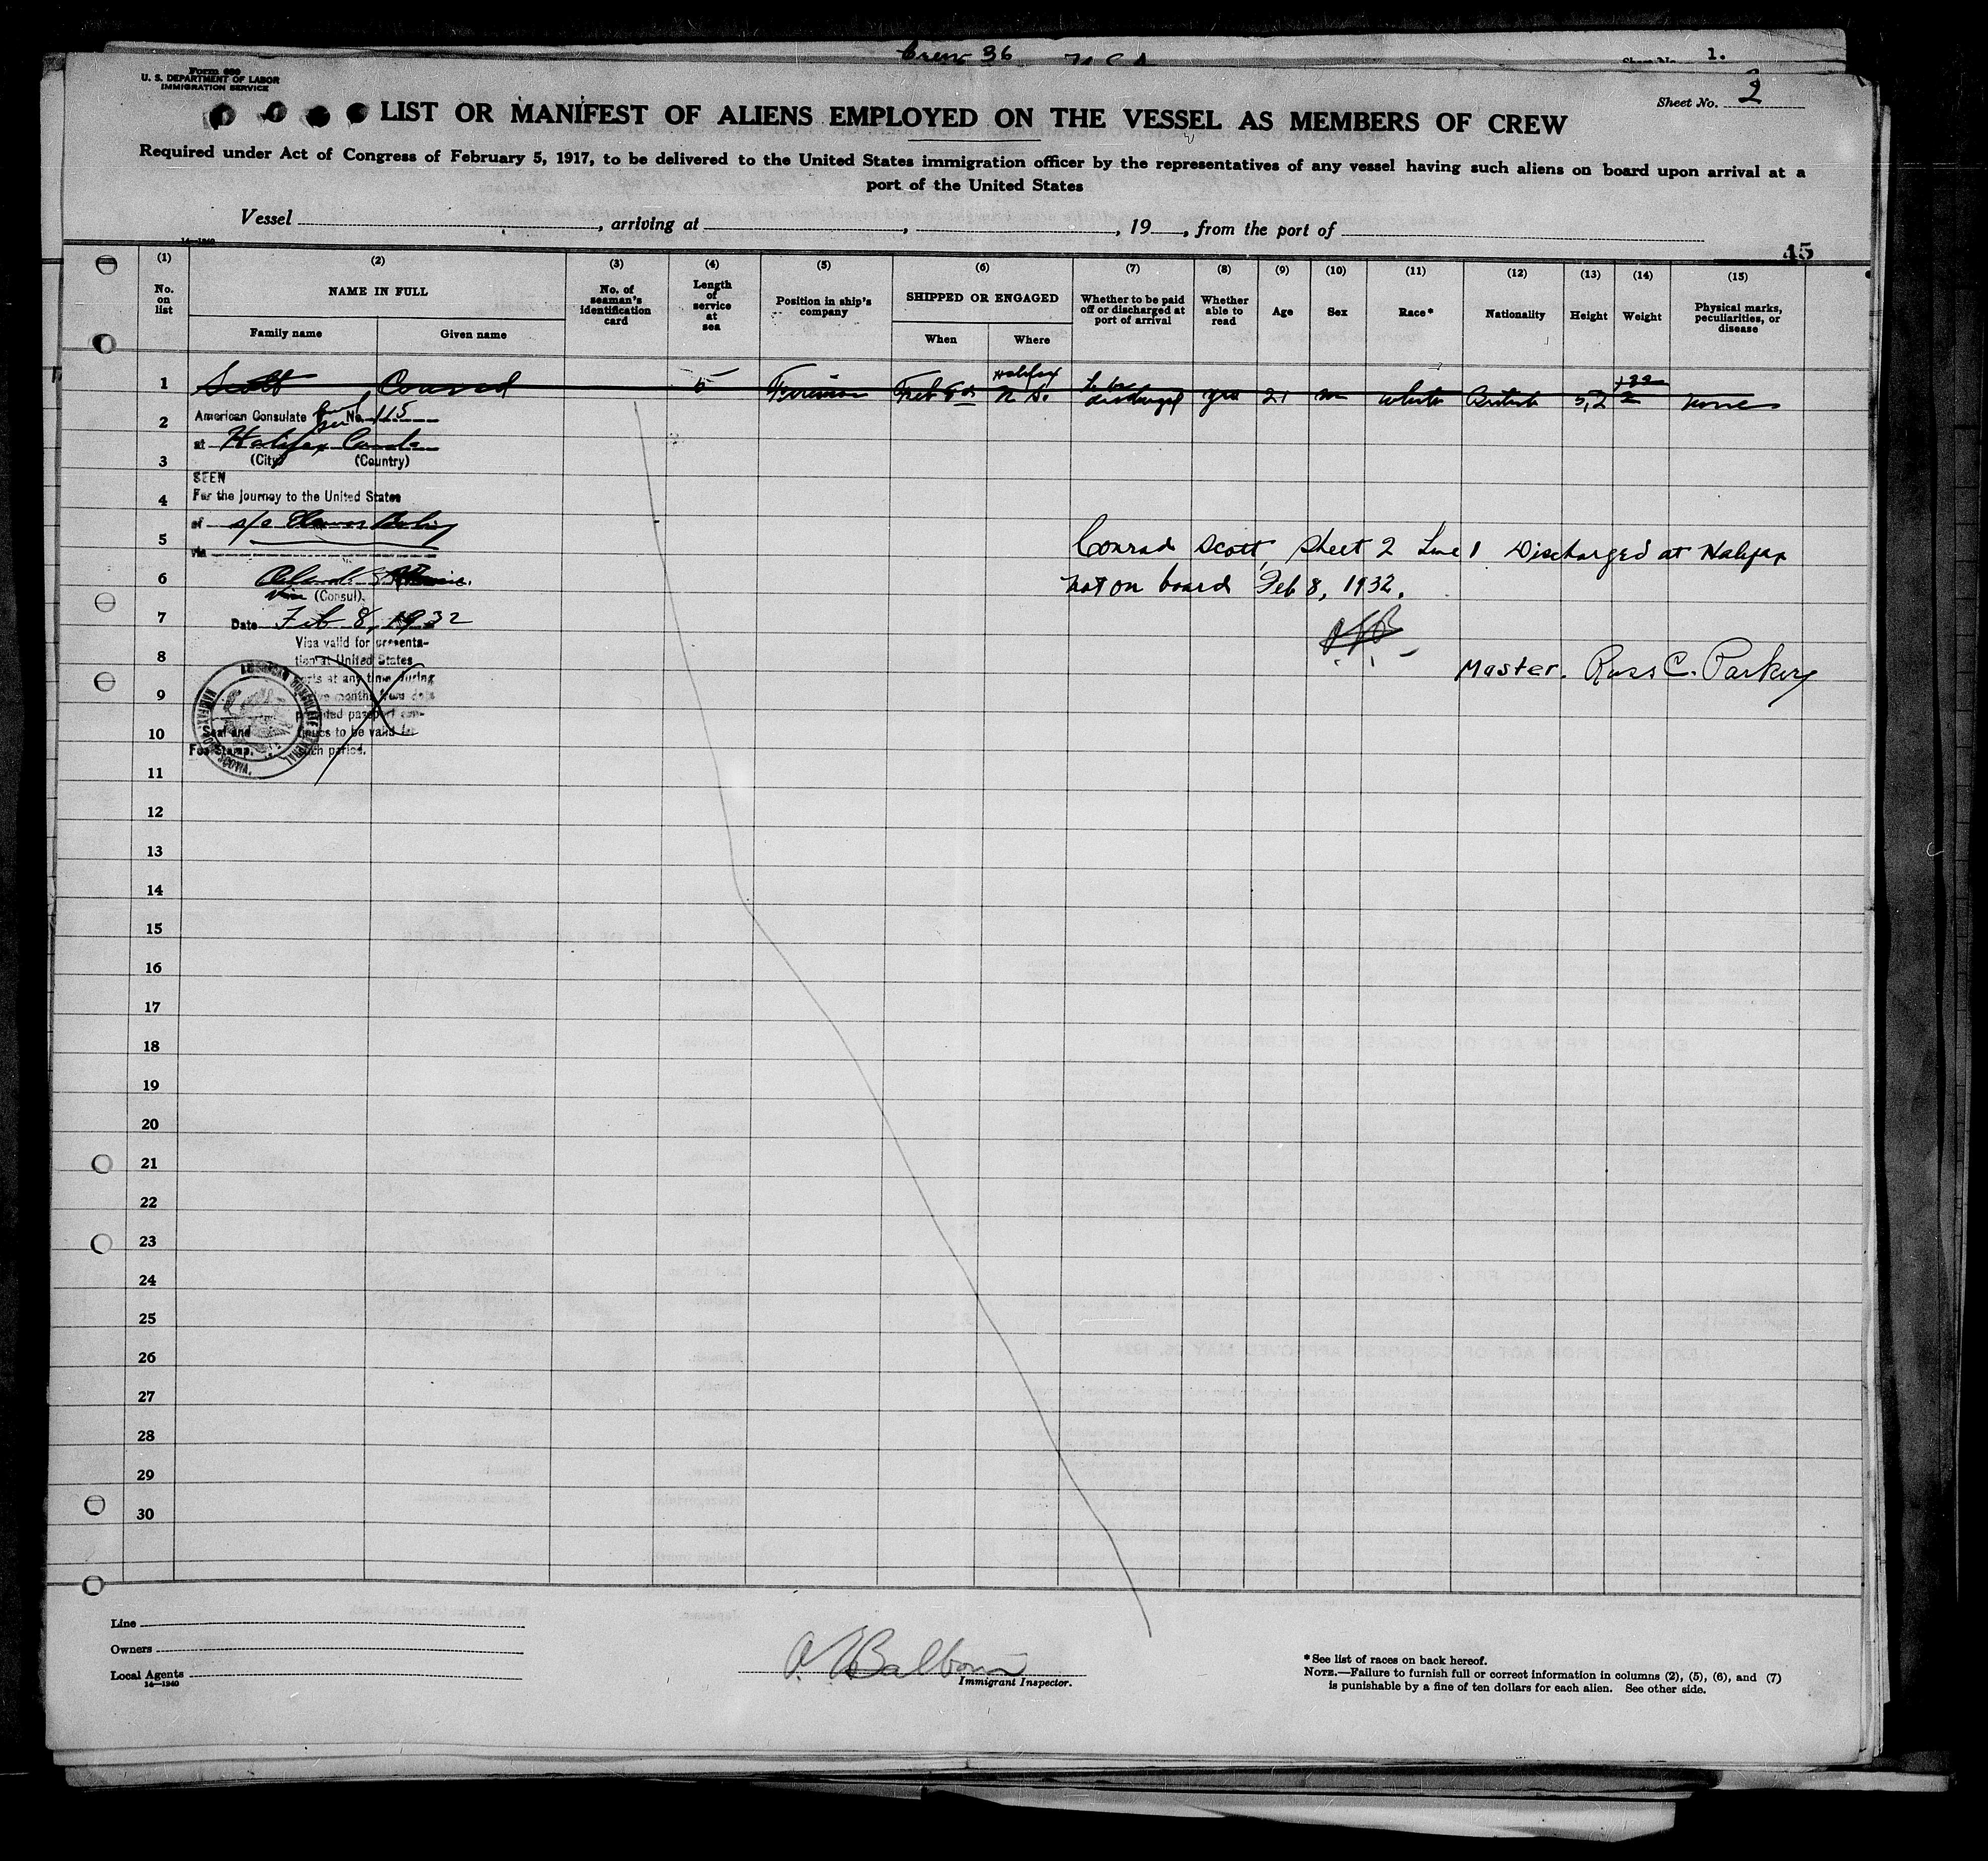 Crew 36
1.
Form 680
U. S. DEPARTMENT OF LABOR
IMMIGRATION SERVICE
Sheet No. 2
LIST OR MANIFEST OF ALIENS EMPLOYED ON THE VESSEL AS MEMBERS OF CREW
Required under Act of Congress of February 5, 1917, to be delivered to the United States immigration officer by the representatives of any vessel having such aliens on board upon arrival at a
port of the United States
Vessel , arriving at , , 19 , from the port of
14—1240
45
(1) (2) (3) (4) (5) (6) (7) (8) (9) (10) (11) (12) (13) (14) (15)
No. on list
NAME IN FULL
Family name Given name
No. of seaman's identification card
Length of service at sea
Position in ship's company
SHIPPED OR ENGAGED
When Where
Whether to be paid off or discharged at port of arrival
Whether able to read
Age
Sex
Race*
Nationality
Height
Weight
Physical marks, peculiarities, or disease
1 Scott Conrad 5 Fireman Feb 8 Halifax N.S. to be discharged yes 21 m white British 5,2 none
2
3
4
5
6
7
8
9
10
11
12
13
14
15
16
17
18
19
20
21
22
23
24
25
26
27
28
29
30
American Consulate No. 115
at Halifax Canada
(City) (Country)
SEEN
For the journey to the United States
of s/s
via
Vice (Consul).
Date Feb 8, 1932
Visa valid for presenta-
tion at United States
ports at any time during
twelve months from date
provided passport con-
tinues to be valid for
such period.
Seal and
Fee Stamp.
AMERICAN CONSULATE GENERAL
HALIFAX NOVA SCOTIA.
Conrad Scott, Sheet 2 Line 1 Discharged at Halifax
not on board Feb 8, 1932.
Master. Ross C. Parker
Line
Owners
Local Agents
14—1240
Immigrant Inspector.
*See list of races on back hereof.
NOTE.—Failure to furnish full or correct information in columns (2), (5), (6), and (7)
is punishable by a fine of ten dollars for each alien. See other side.